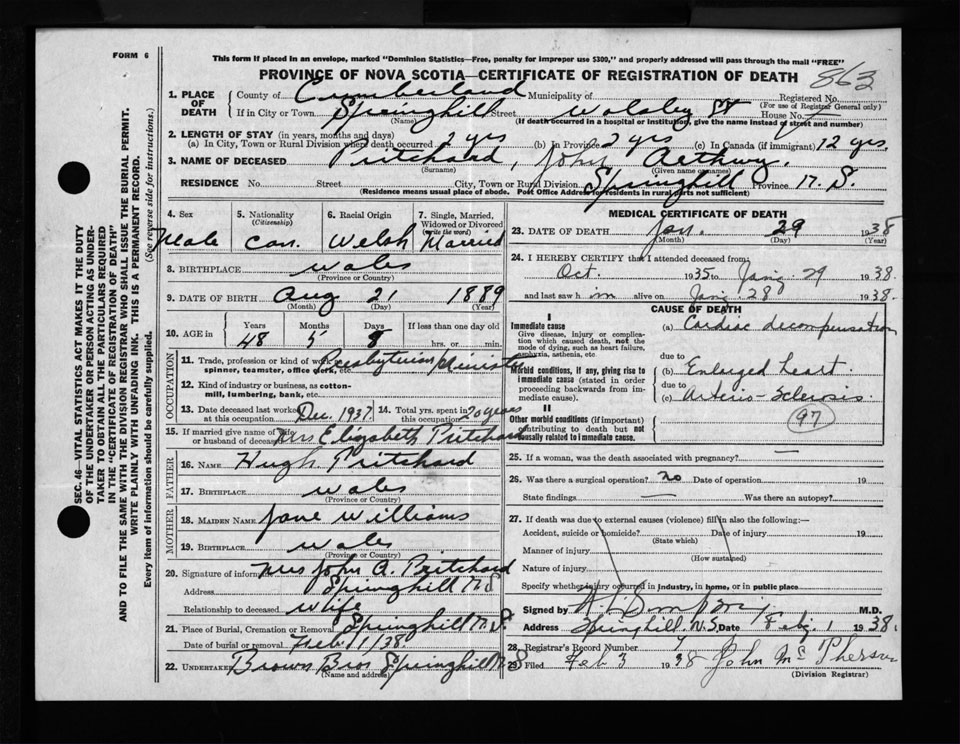 FORM 6
This form if placed in an envelope, marked "Dominion Statistics—Free, penalty for improper use $300," and properly addressed will pass through the mail "FREE"
PROVINCE OF NOVA SCOTIA—CERTIFICATE OF REGISTRATION OF DEATH 863
1. PLACE OF DEATH County of Cumberland Municipality of Registered No.
(For use of Registrar General only)
If in City or Town Springhill Street St House No.
(Name) (If death occurred in a hospital or institution, give the name instead of street and number)
2. LENGTH OF STAY (in years, months and days)
(a) In City, Town or Rural Division where death occurred 2 yrs (b) in Province 2 yrs (c) In Canada (if immigrant) 12 yrs.
3. NAME OF DECEASED Pritchard, John Aethwy.
(Surname) (Given or names)
RESIDENCE No. Street City, Town or Rural Division Springhill Province N.S.
(Residence means usual place of abode. Post Office Address for residents in rural parts not sufficient)
4. Sex
Male
5. Nationality
(Citizenship)
Can.
6. Racial Origin
Welsh
7. Single, Married, Widowed or Divorced
(write the word)
Married
8. BIRTHPLACE Wales
(Province or Country)
9. DATE OF BIRTH Aug 21 1889
(Month) (Day) (Year)
10. AGE in Years Months Days If less than one day old
48 5 8 hrs. or min.
OCCUPATION
11. Trade, profession or kind of work Presbyterian Minister
spinner, teamster, office clerk, etc.
12. Kind of industry or business, as cotton-
mill, lumbering, bank, etc.
13. Date deceased last worked at this occupation Dec. 1937 14. Total yrs. spent in this occupation 20 years
15. If married give name of wife or husband of deceased Mrs Elizabeth Pritchard
FATHER
16. NAME Hugh Pritchard
17. BIRTHPLACE Wales
(Province or Country)
MOTHER
18. MAIDEN NAME Jane Williams
19. BIRTHPLACE Wales
(Province or Country)
20. Signature of informant Mrs John A. Pritchard
Address Springhill N.S
Relationship to deceased Wife
21. Place of Burial, Cremation or Removal Springhill N.S.
Date of burial or removal Feb 1/38
22. UNDERTAKER Brown Bros Springhill N S
(Name and address)
MEDICAL CERTIFICATE OF DEATH
23. DATE OF DEATH Jan. 29 1938
(Month) (Day) (Year)
24. I HEREBY CERTIFY that I attended deceased from
Oct. 1935 to Jan'y 29 1938.
and last saw him alive on Jan'y 28 1938.
CAUSE OF DEATH
I
Immediate cause
Give disease, injury or complication which caused death, not the mode of dying, such as heart failure, asphyxia, asthenia, etc.
(a) Cardiac decompensation
due to
Morbid conditions, if any, giving rise to immediate cause (stated in order proceeding backwards from immediate cause).
(b) Enlarged heart
due to
(c) Arterio-Sclerosis.
II
Other morbid conditions (if important) contributing to death but not causally related to immediate cause.
97
25. If a woman, was the death associated with pregnancy? —
26. Was there a surgical operation? no Date of operation 19
State findings — Was there an autopsy?
27. If death was due to external causes (violence) fill in also the following:—
Accident, suicide or homicide? Date of injury 19
(State which)
Manner of injury
(How sustained)
Nature of injury
Specify whether injury occurred in industry, in home, or in public place
Signed by M.D.
Address Springhill, N.S. Date Feb'y. 1 1938.
28. Registrar's Record Number 7
29. Filed Feb 3 1938 John McPherson
(Division Registrar)
SEC. 46—VITAL STATISTICS ACT MAKES IT THE DUTY
OF THE UNDERTAKER OR PERSON ACTING AS UNDER-
TAKER TO OBTAIN ALL THE PARTICULARS REQUIRED
IN THE "CERTIFICATE OF REGISTRATION OF DEATH"
AND TO FILE THE SAME WITH THE DIVISION REGISTRAR WHO SHALL ISSUE THE BURIAL PERMIT.
WRITE PLAINLY WITH UNFADING INK. THIS IS A PERMANENT RECORD.
Every item of information should be carefully supplied. (See reverse side for instructions.)